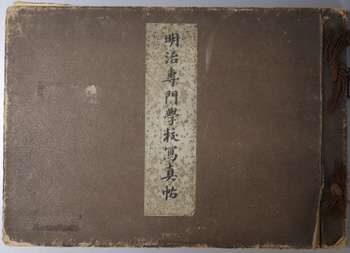 明治專門學校寫真帖